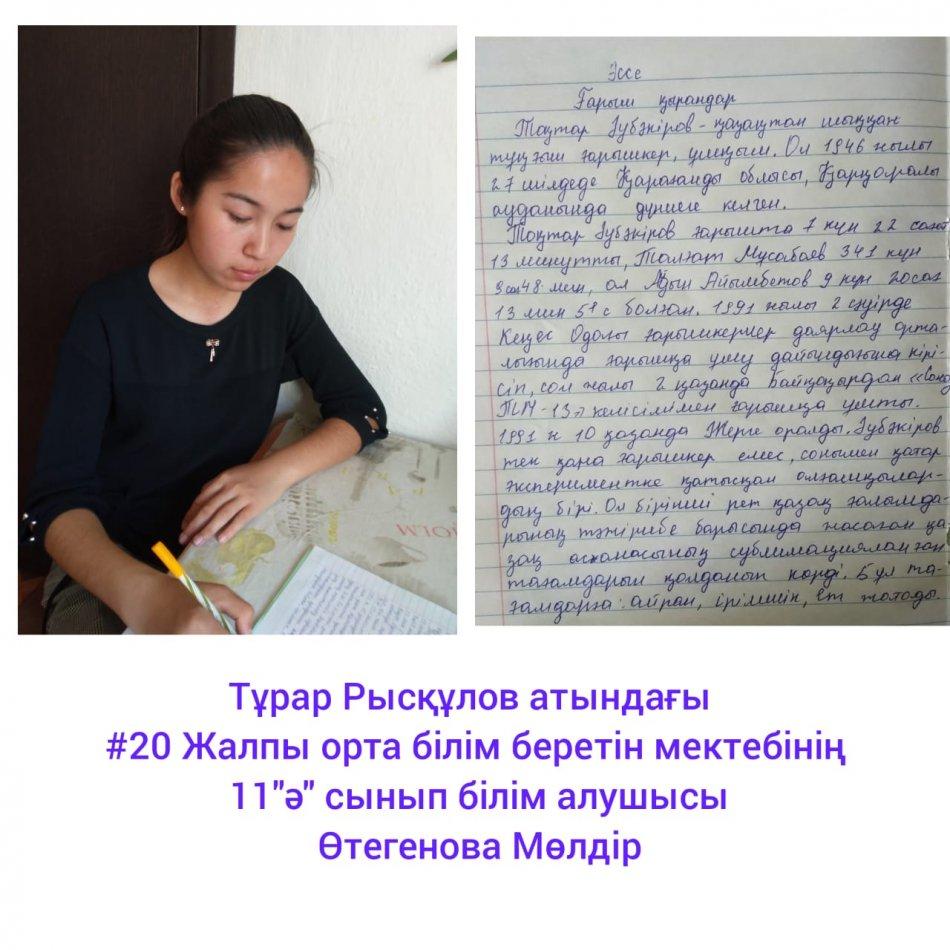 Эссе
Ғарыш қырандар
Тоқтар Әубәкіров - қазақтан шыққан
тұңғыш ғарышкер, ұшқыш. Ол 1946 жылы
27 шілдеде Қарағанды облысы, Қарқаралы
ауданында дүниеге келген.
Тоқтар Әубәкіров ғарышта 7 күн 22 сағат
13 минутты, Талғат Мұсабаев 341 күн
9 сағ 48 мин, ал Айдын Айымбетов 9 күн 20 сағ
13 мин 51 с болған. 1991 жылы 2 сәуірде
Кеңес Одағы ғарышкерлер даярлау орта-
лығында ғарышқа ұшу дайындығына кірі-
сіп, сол жылы 2 қазанда Байқоңырдан «Союз
ТМ-13» кемесімен ғарышқа ұшты.
1991 ж 10 қазанда Жерге оралды. Әубәкіров
тек қана ғарышкер емес, сонымен қатар
экспериментке қатысқан алғашқылар-
дың бірі. Ол бірінші рет қазақ ғалымда-
рының тәжірибе барысында жасаған қа-
зақ асханасының сублимацияланған
тағамдарын қолданып көрді. Бұл та-
ғамдарға: айран, ірімшік, ет жатады.
HOLM
Тұрар Рысқұлов атындағы
#20 Жалпы орта білім беретін мектебінің
11"ә" сынып білім алушысы
Өтегенова Мөлдір